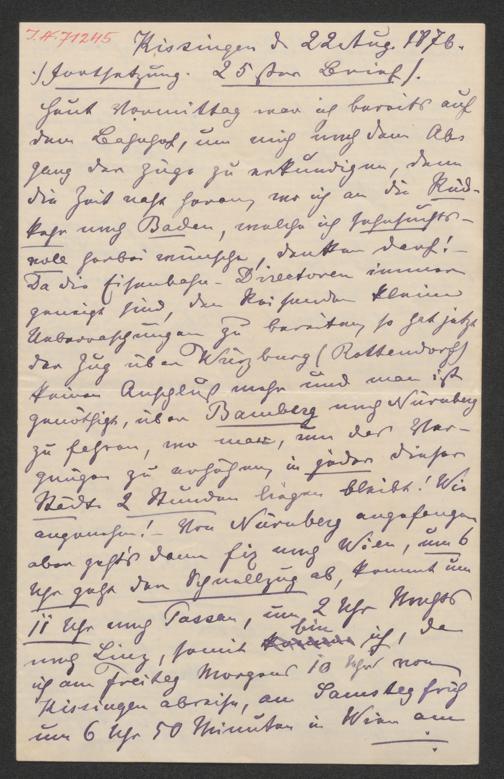 I.N. 71245
Kissingen d 22 Aug. 1876.
./Fortsetzung. 25ster Brief/.
Heut Vormittag war ich bereits auf
dem Bahnhof, um mich nach dem Ab-
gang der Züge zu erkundigen, denn
die Zeit naht heran, wo ich an die Rück-
kehr nach Baden, welche ich sehnsuchts-
voll herbei wünsche, denken darf! –
Da die Eisenbahn-Directoren immer
geneigt sind, den Reisenden kleine
Ueberraschungen zu bereiten, so hat jetzt
der Zug über Würzburg (Rottendorf)
keinen Anschluß mehr und man ist
genöthigt, über Bamberg nach Nürnberg
zu fahren, wo man, um das Ver-
gnügen zu erhöhen, in jeder dieser
Städte 2 Stunden liegen bleibt! Wie
angenehm! – Von Nürnberg angefangen
aber geht's dann fix nach Wien, um 6
Uhr geht der Schnellzug ab, kommt um
11 Uhr nach Passau, um 2 Uhr Nachts
nach Linz, somit bin ich, da
ich am Freitag Morgens 10 Uhr von
Kissingen abreise, am Samstag früh
um 6 Uhr 50 Minuten in Wien am